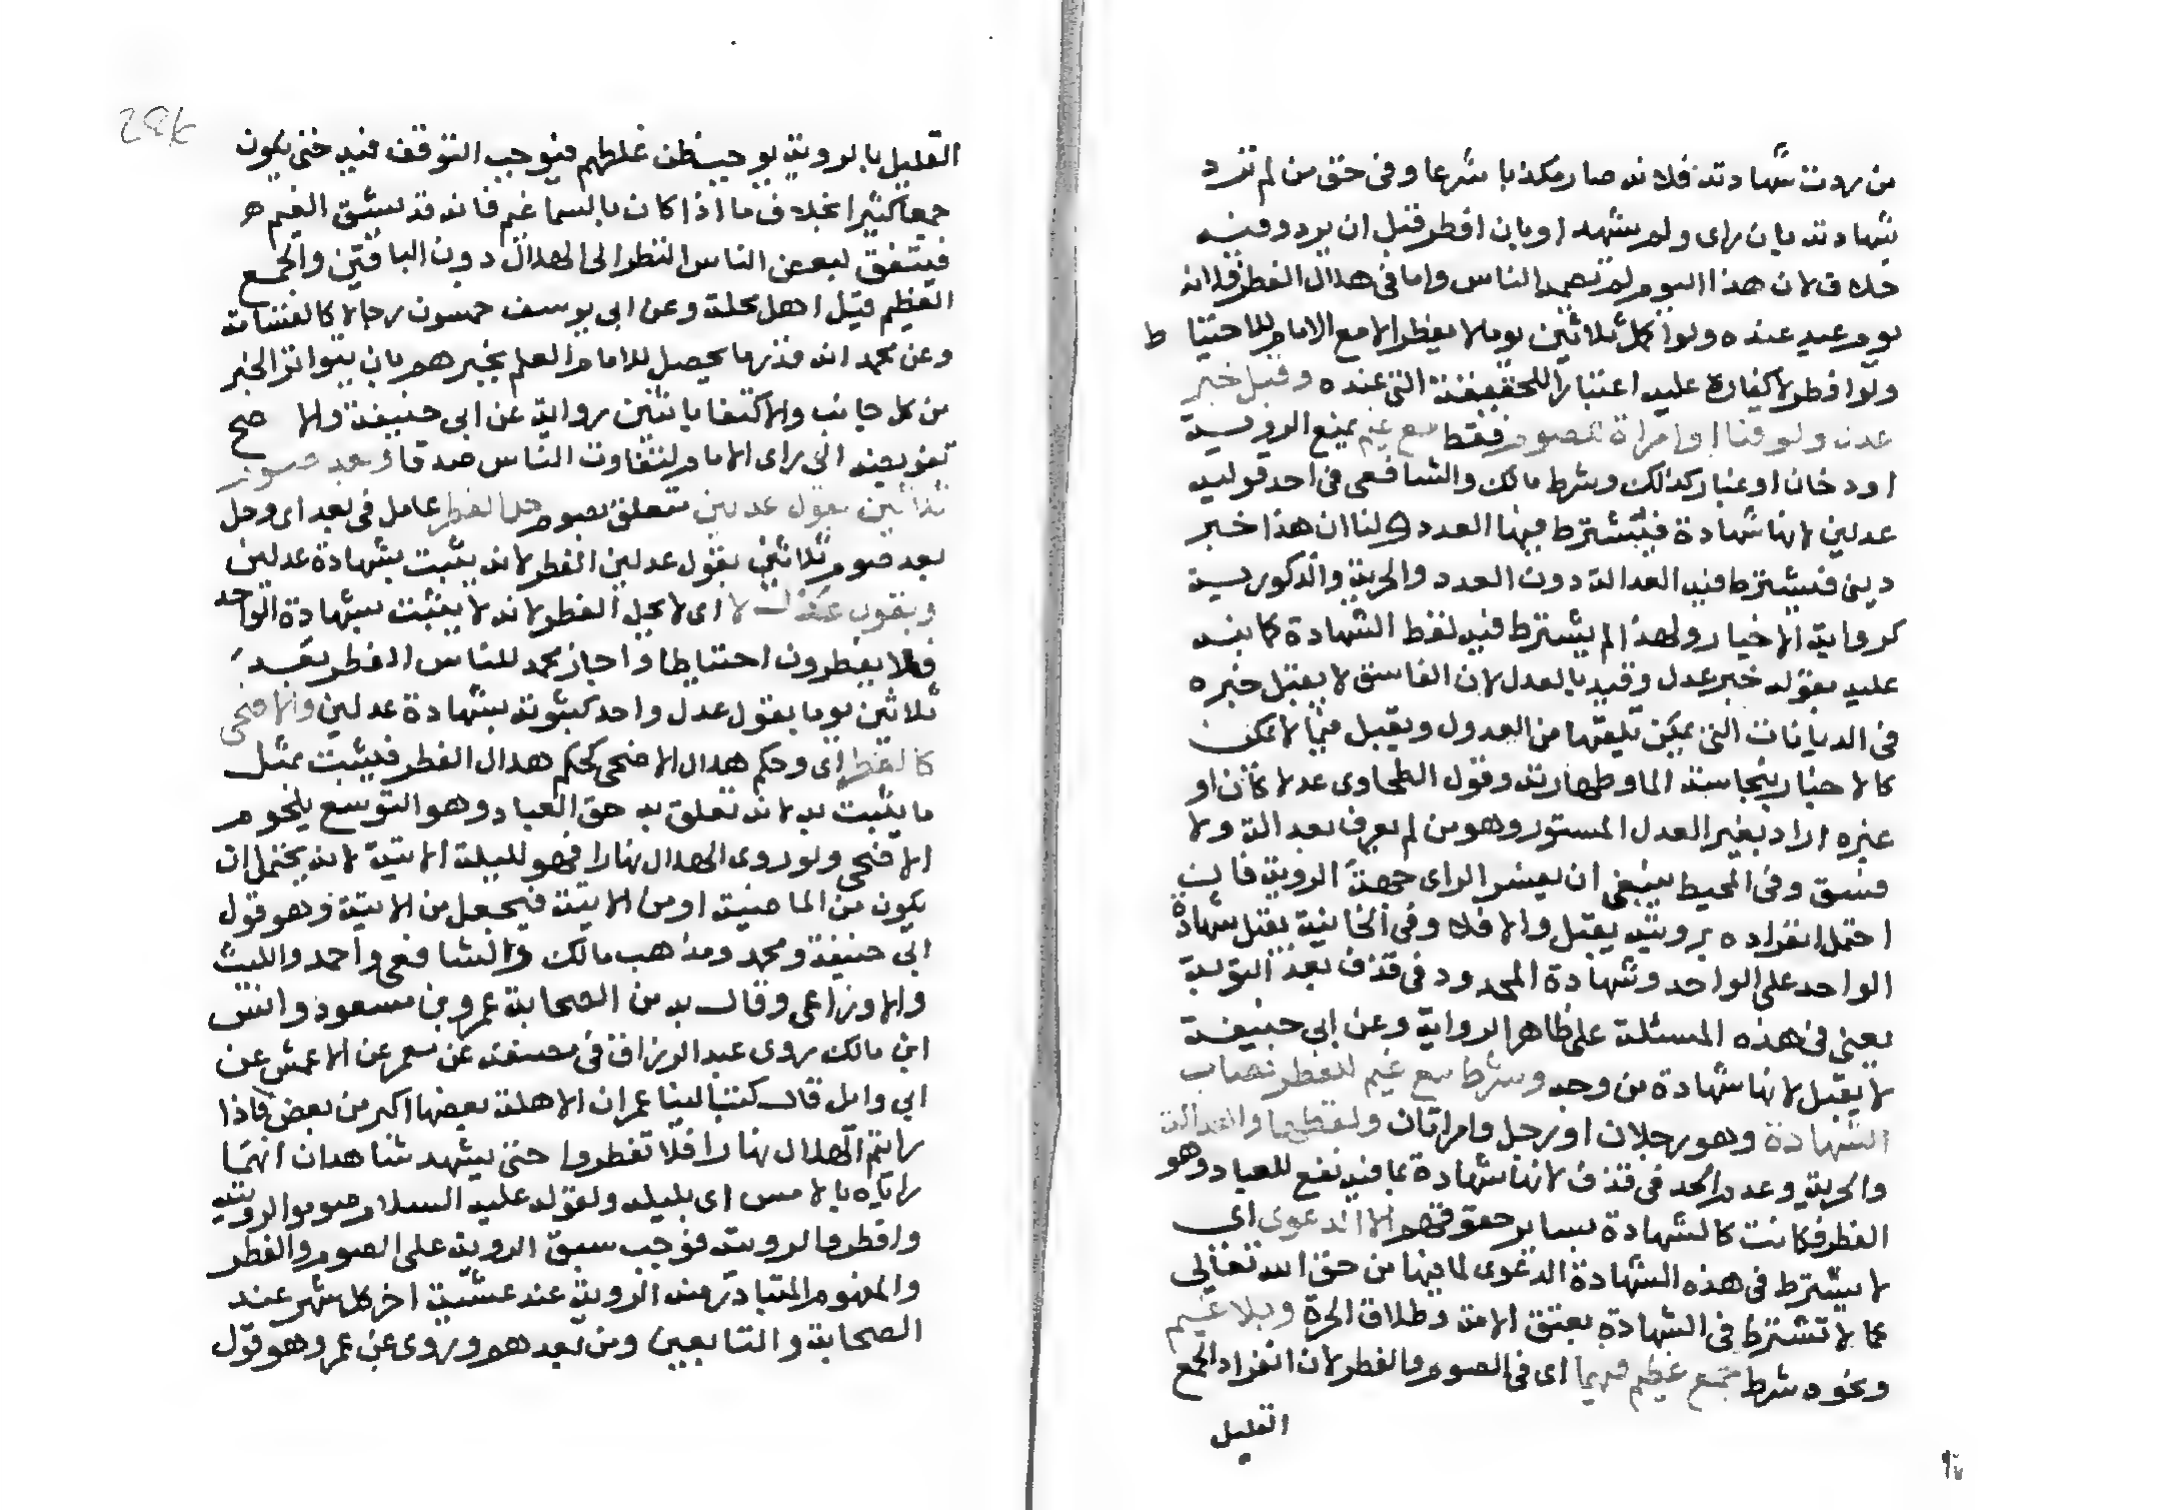 من ردت شهادته فلانه صار مكذبا شرعا وفى حق من لم ترد
شهادته بان راى ولم يشهد او بان افطر قبل ان يرد وفيه
خلاف لان هذا اليوم لم يصمه الناس واما فى هلال الفطر فلانه
يوم عيد عنده ولو اكمل ثلاثين يوما لا يفطر الا مع الامام للاحتيا ط
ولو افطر لا كفارة عليه اعتبارا للحقيقة التى عنده وقبل خبر
عدل ولو قنا او امراة للصوم فقط مع غيم يمنع الروية
او دخان او غبار كذلك وشرط مالك والشافعى فى احد قوليه
عدلين لانها شهادة فيشترط فيها العدد ولنا ان هذا خبر
دينى فيشترط فيه العدالة دون العدد والحرية والذكورية
كرواية الاخبار ولهذا لم يشترط فيه لفظ الشهادة كما نبه
عليه بقوله خبر عدل وقيد بالعدل لان الفاسق لا يقبل خبره
فى الديانات التى يمكن تلقيها من العدول ويقبل فيما لا يمكن
كالاخبار بنجاسة الما وطهارته وقول الطحاوى عدلا كان او
غيره اراد بغير العدل المستور وهو من لم يعرف بعدالة ولا
فسق وفى المحيط ينبغى ان يفسر الراى جهة الروية فان
احتمل انفراده برويته يقبل والا فلا وفى الخانية يقبل شهادة
الواحد على الواحد وشهادة المحدود فى قذف بعد التوبة
يعنى فى هذه المسئلة على ظاهر الرواية وعن ابى حنيفة
لا يقبل لانها شهادة من وجه وشرط مع غيم للفطر نصاب
الشهادة وهو رجلان او رجل وامراتان ولفظها والعدالة
والحرية وعدم الحد فى قذف لانها شهادة بما فيه نفع للعباد وهو
الفطر فكانت كالشهادة بساير حقوقهم لا الدعوى اى
لا يشترط فى هذه الشهادة الدعوى لما فيها من حق الله تعالى
كما لا تشترط فى الشهادة بعتق الامة وطلاق الحرة وبلا غيم
ونحوه شرط جمع عظيم فيهما اى فى الصوم والفطر لان انفراد الجمع
القليل
القليل بالروية يوجب ظن غلطهم فيوجب التوقف فيه حتى يكون
جمعا كثيرا بخلاف ما اذا كان بالسما غيم فانه قد يشق الغيم
فيتفق لبعض الناس النظر الى الهلال دون الباقين والجمع
العظيم قيل اهل محلة وعن ابى يوسف خمسون رجلا كالقسامة
وعن محمد انه قدر ما يحصل للامام العلم بخبرهم بان يتواتر الخبر
من كل جانب والاكتفا باثنين رواية عن ابى حنيفة والا صح
تفويضه الى راى الامام لتفاوت الناس صدقا وبعد صوم
ثلاثين بقول عدلين متعلق بصوم حل الفطر عامل فى بعد اى وحل
بعد صوم ثلاثين بقول عدلين الفطر لانه يثبت بشهادة عدلين
وبقول عدل لا اى لا يحل الفطر لانه لا يثبت بشهادة الواحد
فلا يفطرون احتياطا واجاز محمد للناس الفطر بعد
ثلاثين يوما بقول عدل واحد كثبوته بشهادة عدلين والاضحى
كالفطر اى وحكم هلال الاضحى كحكم هلال الفطر فيثبت بمثل
ما يثبت به لانه تعلق به حق العباد وهو التوسع بلحوم
الاضحى ولو روى الهلال نهارا فهو لليلة الاتية لانه يحتمل ان
يكون من الماضية او من الاتية فيجعل من الاتية وهو قول
ابى حنيفة ومحمد ومذهب مالك والشافعى واحمد والليث
والاوزاعى وقال به من الصحابة عمر وبن مسعود وانس
ابن مالك روى عبد الرزاق فى مصنفه عن معمر عن الاعمش عن
ابى وايل قال كتب الينا عمر ان الاهلة بعضها اكبر من بعض فاذا
رايتم الهلال نهارا فلا تفطروا حتى يشهد شاهدان انهما
راياه بالامس اى بليله ولقوله عليه السلام صوموا لرويته
وافطروا لرويته فوجب سبق الروية على الصوم والفطر
والمفهوم المتبادر منه الروية عند عشية اخر كل شهر عند
الصحابة والتابعين ومن بعدهم وروى عن عمر وهو قول